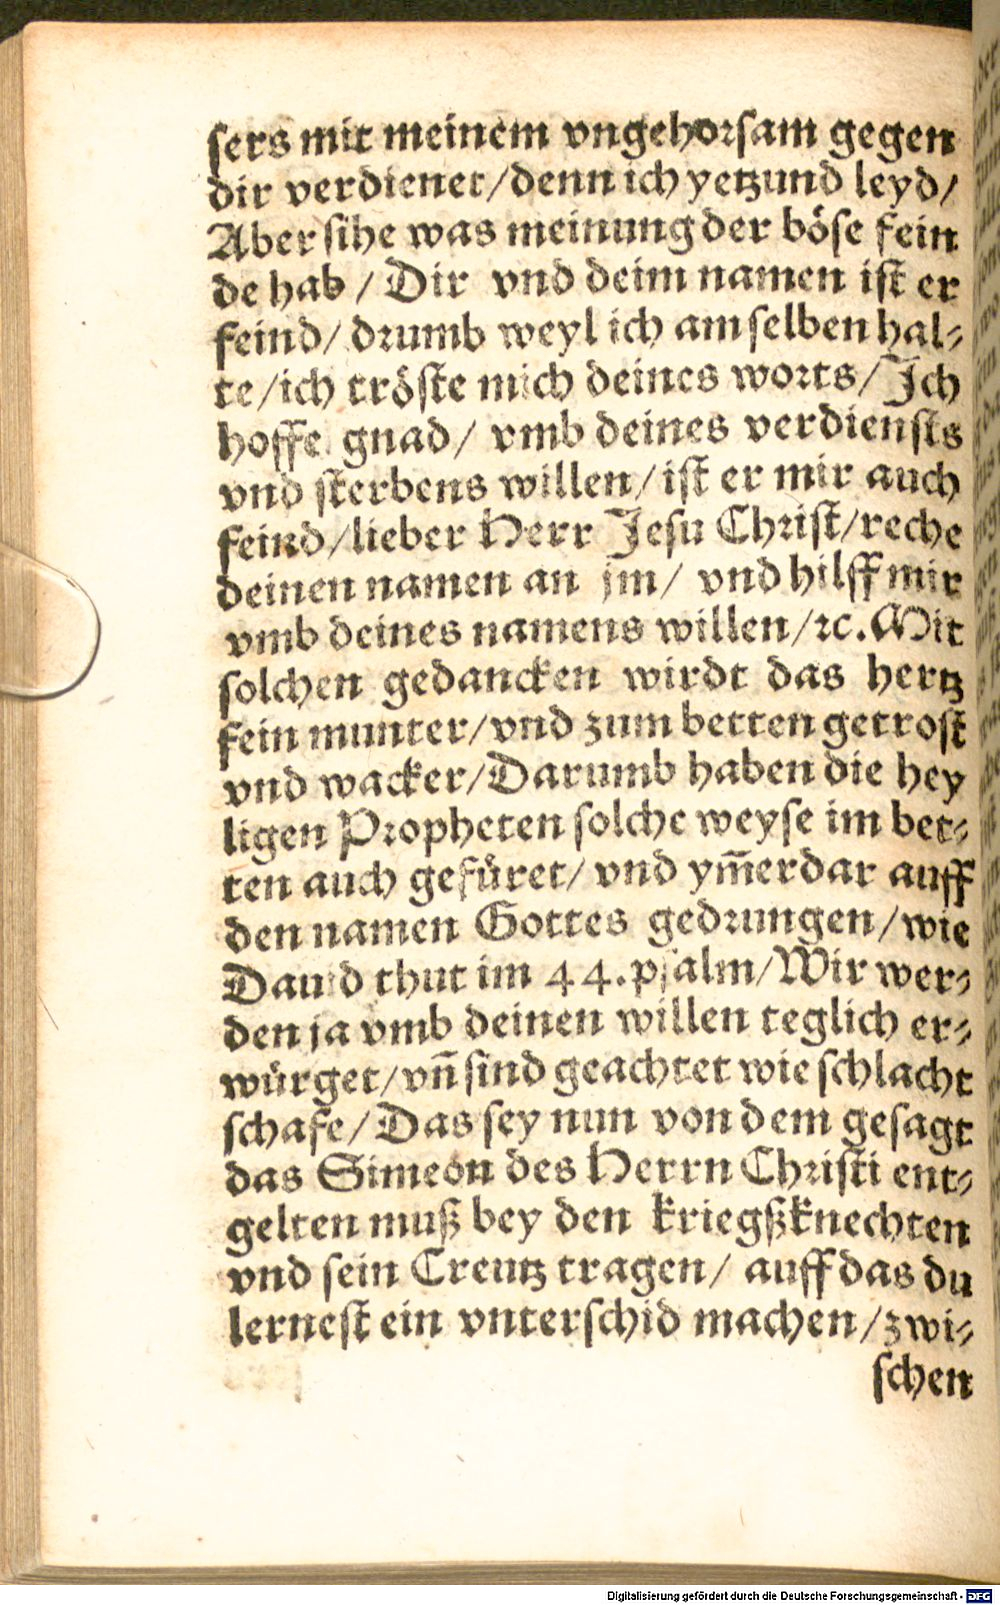 ſers mit meinem vngehorſam gegen
dir verdienet/denn ich yetzund leyd/
Aber ſihe was meinung der böſe fein
de hab / Dir vnd deim namen iſt er
feind/ drumb weyl ich am ſelben hal⸗
te/ich tröſte mich deines worts/Ich
hoffe gnad/ vmb deines verdienſts
vnd ſterbens willen/iſt er mir auch
feind/lieber Herr Jeſu Chriſt/reche
deinen namen an jm/ vnd hilff mir
vmb deines namens willen/ꝛc. Mit
ſolchen gedancken wirdt das hertz
fein munter/vnd zum betten getroſt
vnd wacker/Darumb haben die hey
ligen Propheten ſolche weyſe im bet⸗
ten auch gefüret/ vnd ym̃erdar auff
den namen Gottes gedrungen/wie
Dauid thut im 44.pſalm/Wir wer⸗
den ja vmb deinen willen teglich er⸗
würget/vñ ſind geachtet wie ſchlacht
ſchafe/Das ſey nun von dem geſagt
das Simeon des Herrn Chriſti ent⸗
gelten muß bey den kriegßknechten
vnd ſein Creutz tragen/ auff das du
lerneſt ein vnterſchid machen/zwi⸗
ſchen
Digitalisierung gefördert durch die Deutsche Forschungsgemeinschaft - DFG